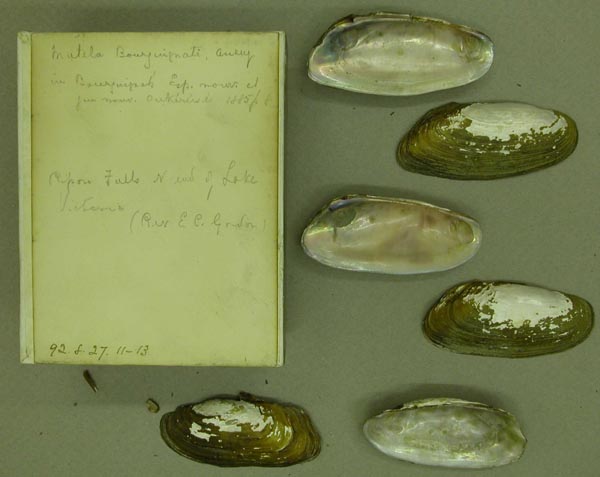 Mutela Bourguignati, Ancey
in Bourguignat Esp. nouv. et
gen. nouv. 1885 p. 8
Ripon Falls N end of Lake
Victoria
(Rev E. C. Gordon)
92.8.27.11-13